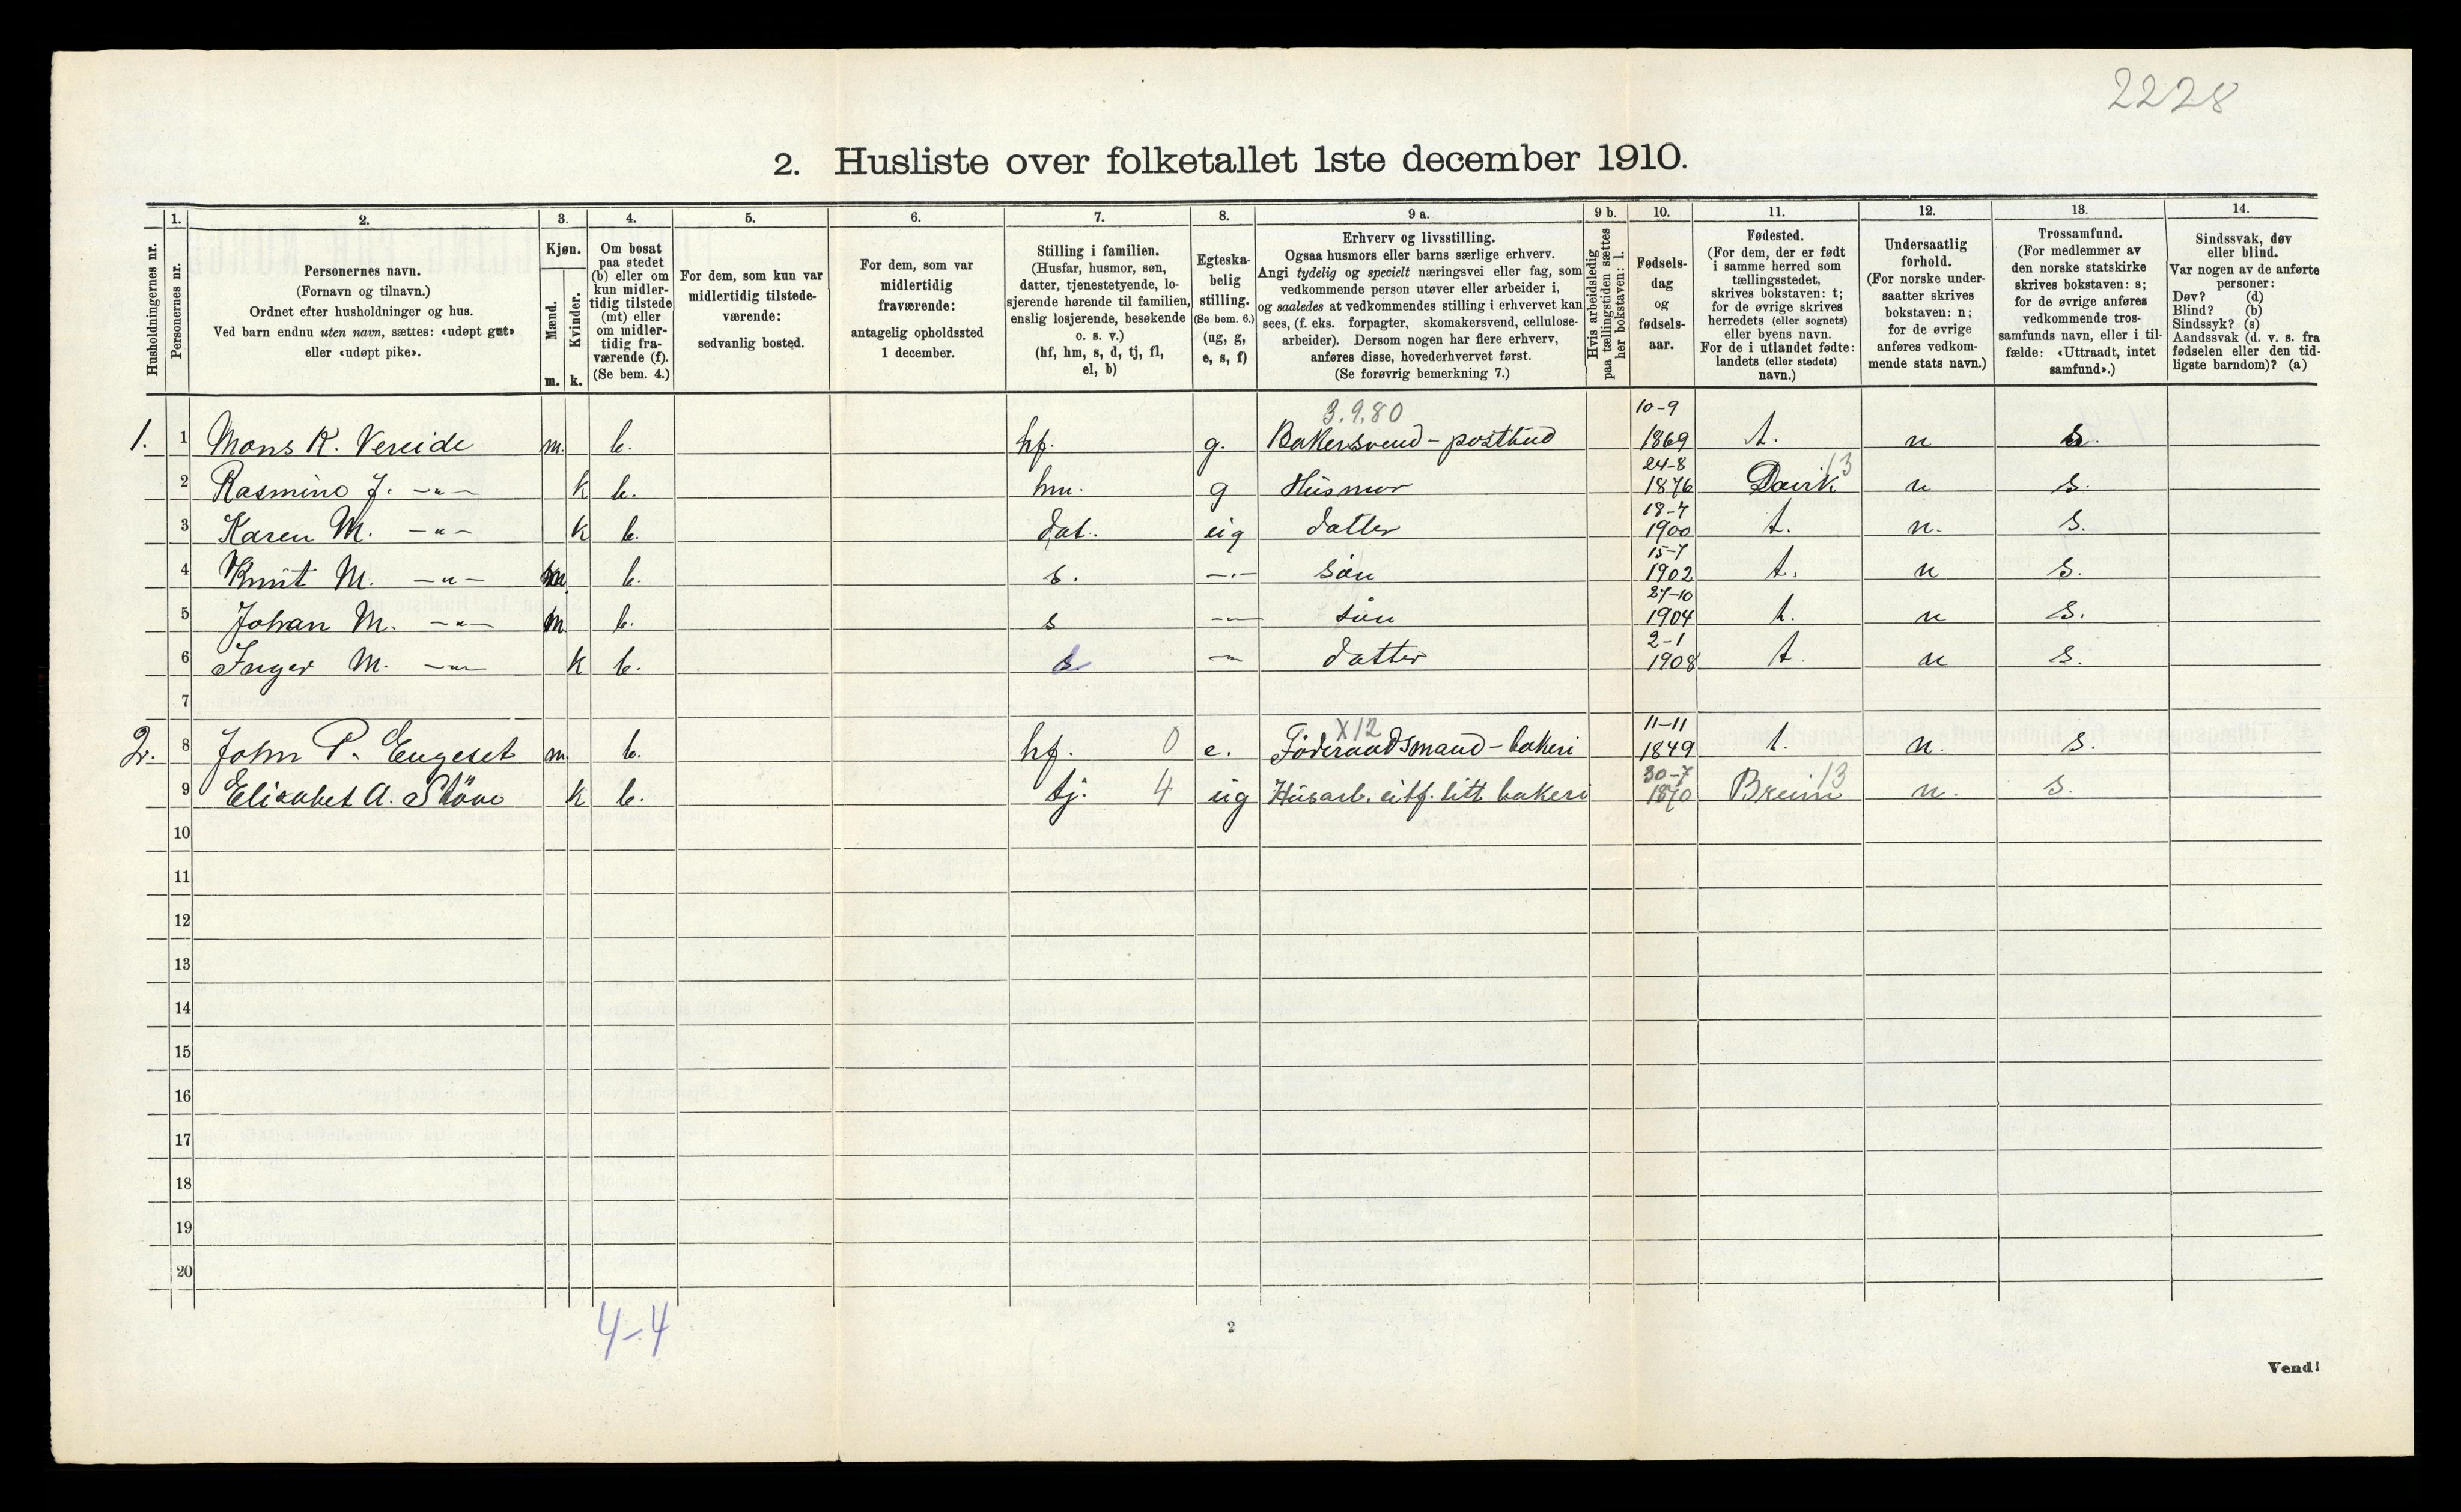 2228
2. Husliste over folketallet 1ste december 1910.
1. 2. 3. 4. 5. 6. 7. 8. 9 a. 9 b. 10. 11. 12. 13. 14.
Husholdningernes nr.
Personernes nr.
Personernes navn.
(Fornavn og tilnavn.)
Ordnet efter husholdninger og hus.
Ved barn endnu uten navn, sættes: «udøpt gut»
eller «udøpt pike».
Kjøn.
Mænd.
Kvinder.
m. k.
Om bosat
paa stedet
(b) eller om
kun midler-
tidig tilstede
(mt) eller
om midler-
tidig fra-
værende (f).
(Se bem. 4.)
For dem, som kun var
midlertidig tilstede-
værende:
sedvanlig bosted.
For dem, som var
midlertidig
fraværende:
antagelig opholdssted
1 december.
Stilling i familien.
(Husfar, husmor, søn,
datter, tjenestetyende, lo-
sjerende hørende til familien,
enslig losjerende, besøkende
o. s. v.)
(hf, hm, s, d, tj, fl,
el, b)
Egteska-
belig
stilling.
(Se bem. 6.)
(ug, g,
e, s, f)
Erhverv og livsstilling.
Ogsaa husmors eller barns særlige erhverv.
Angi tydelig og specielt næringsvei eller fag, som
vedkommende person utøver eller arbeider i,
og saaledes at vedkommendes stilling i erhvervet kan
sees, (f. eks. forpagter, skomakersvend, cellulose-
arbeider). Dersom nogen har flere erhverv,
anføres disse, hovederhvervet først.
(Se forøvrig bemerkning 7.)
Hvis arbeidsledig
paa tællingstiden sættes
her bokstaven: l.
Fødsels-
dag
og
fødsels-
aar.
Fødested.
(For dem, der er født
i samme herred som
tællingsstedet,
skrives bokstaven: t;
for de øvrige skrives
herredets (eller sognets)
eller byens navn.
For de i utlandet fødte:
landets (eller stedets)
navn.)
Undersaatlig
forhold.
(For norske under-
saatter skrives
bokstaven: n;
for de øvrige
anføres vedkom-
mende stats navn.)
Trossamfund.
(For medlemmer av
den norske statskirke
skrives bokstaven: s;
for de øvrige anføres
vedkommende tros-
samfunds navn, eller i til-
fælde: «Uttraadt, intet
samfund».)
Sindssvak, døv
eller blind.
Var nogen av de anførte
personer:
Døv? (d)
Blind? (b)
Sindssyk? (s)
Aandssvak (d. v. s. fra
fødselen eller den tid-
ligste barndom)? (a)
3.9.80 10-9
1. 1 Mons K. Vereide m. b. hf. g. Bakersvend - postbud 1869 t. n s.
24-8 13
2 Rasmine J. -"- k b. hm. g Husmor 1876 Davik n s.
18-7
3 Karen M. -"- k b. dat. uig datter 1900 t. n. s.
15-7
4 Knut M. -"- m. b. s. -"- søn 1902 t. n s.
27-10
5 Johan M. -"- m b. s -"- søn 1904 t. n s.
2-1
6 Inger M. -"- k b. -"- datter 1908 t. n s.
7
X12 11-11
2. 8 John P. Engeset m. b. hf. 0 e. Føderaadsmand - bakeri 1849 t. n. s.
30-7 13
9 Elisabet A. k b. tj. 4 uig Husarb. litt bakeri 1870 Breim n. s.
10
11
12
13
14
15
16
17
18
19
20
4-4
2
Vend!